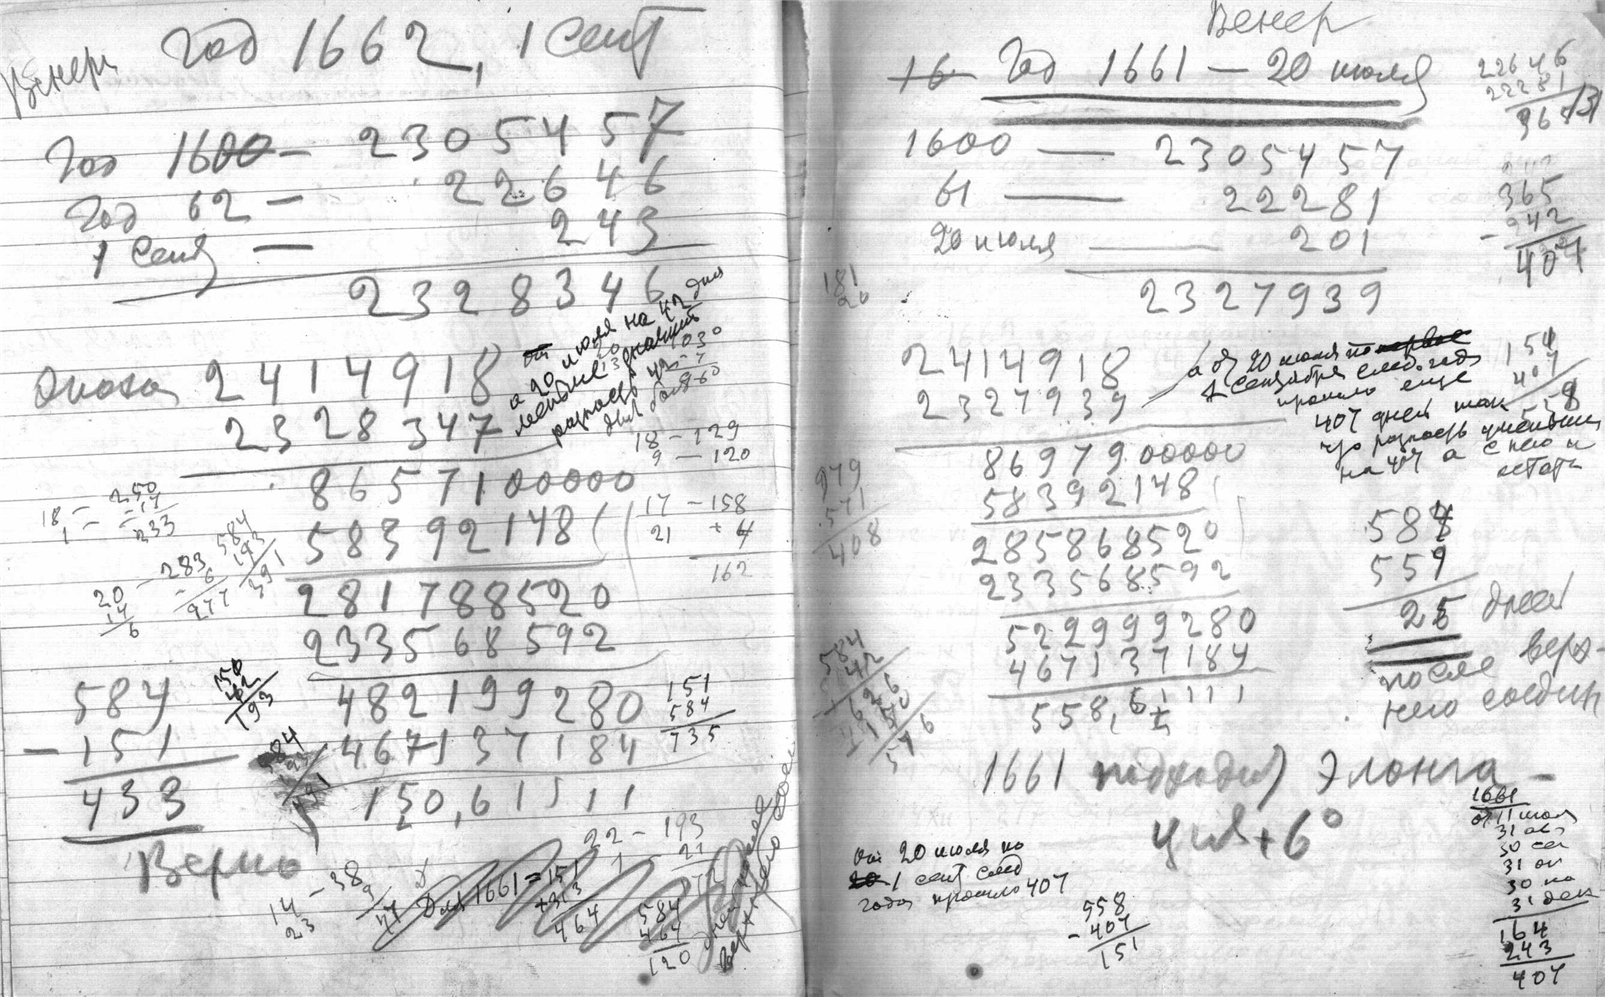 Венера
Год 1662, 1 сент
Год 1600 — 2305457
Год 62 — 22646
1 сент — 243
2328346
Эпоха 2414918
2328347
8657100000
58392148
281788520
233568592
482199280
467137184
150,61111
584
- 151
433
Верно
18 — 129
9 — 120
17 — 158
21 + 4
162
18 — 250
1 — 17
233
20 — 283
14 6
6 277
584
193
391
150
42
193
151
584
735
22 — 193
1 — 21
14 — 38
23
Для 1661 = 151
+313
464
584
464
120
Венер
16 Год 1661 — 20 июля
1600 — 2305457
61 — 22281
20 июля — 201
2327939
22646
22281
365
365
242
407
181
20
2414918
2327939
8697900000
58392148
285868520
233568592
529999280
467137184
558,61111
а от 20 июля по первое
1 сентября след. года
прошло еще
407 дней так
что разность уменьшит
на 407 а с нею и
154
407
558
979
571
408
584
559
25 дней
после верх-
него соедин
584
42
626
1661 подходит элонга-
ция + 6°
от 20 июля по
20 1 сент след
года прошло 407
558
- 407
151
1661
от 11 июля
31 ав
30 се
31 ок
30 но
31 дек
164
243
407